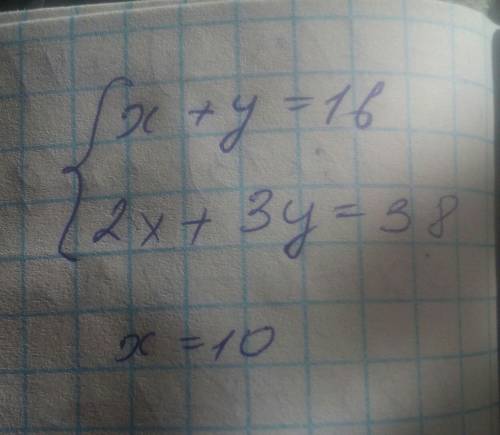 x + y = 16
2x + 3y = 38
x = 10